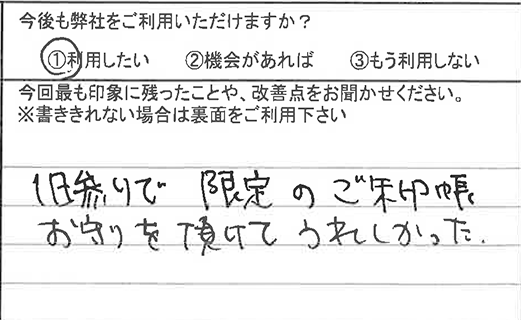 今後も弊社をご利用いただけますか？
①利用したい ②機会があれば ③もう利用しない
今回最も印象に残ったことや、改善点をお聞かせください。
※書ききれない場合は裏面をご利用下さい
限定のご朱印帳
お守りを頂けてうれしかった.